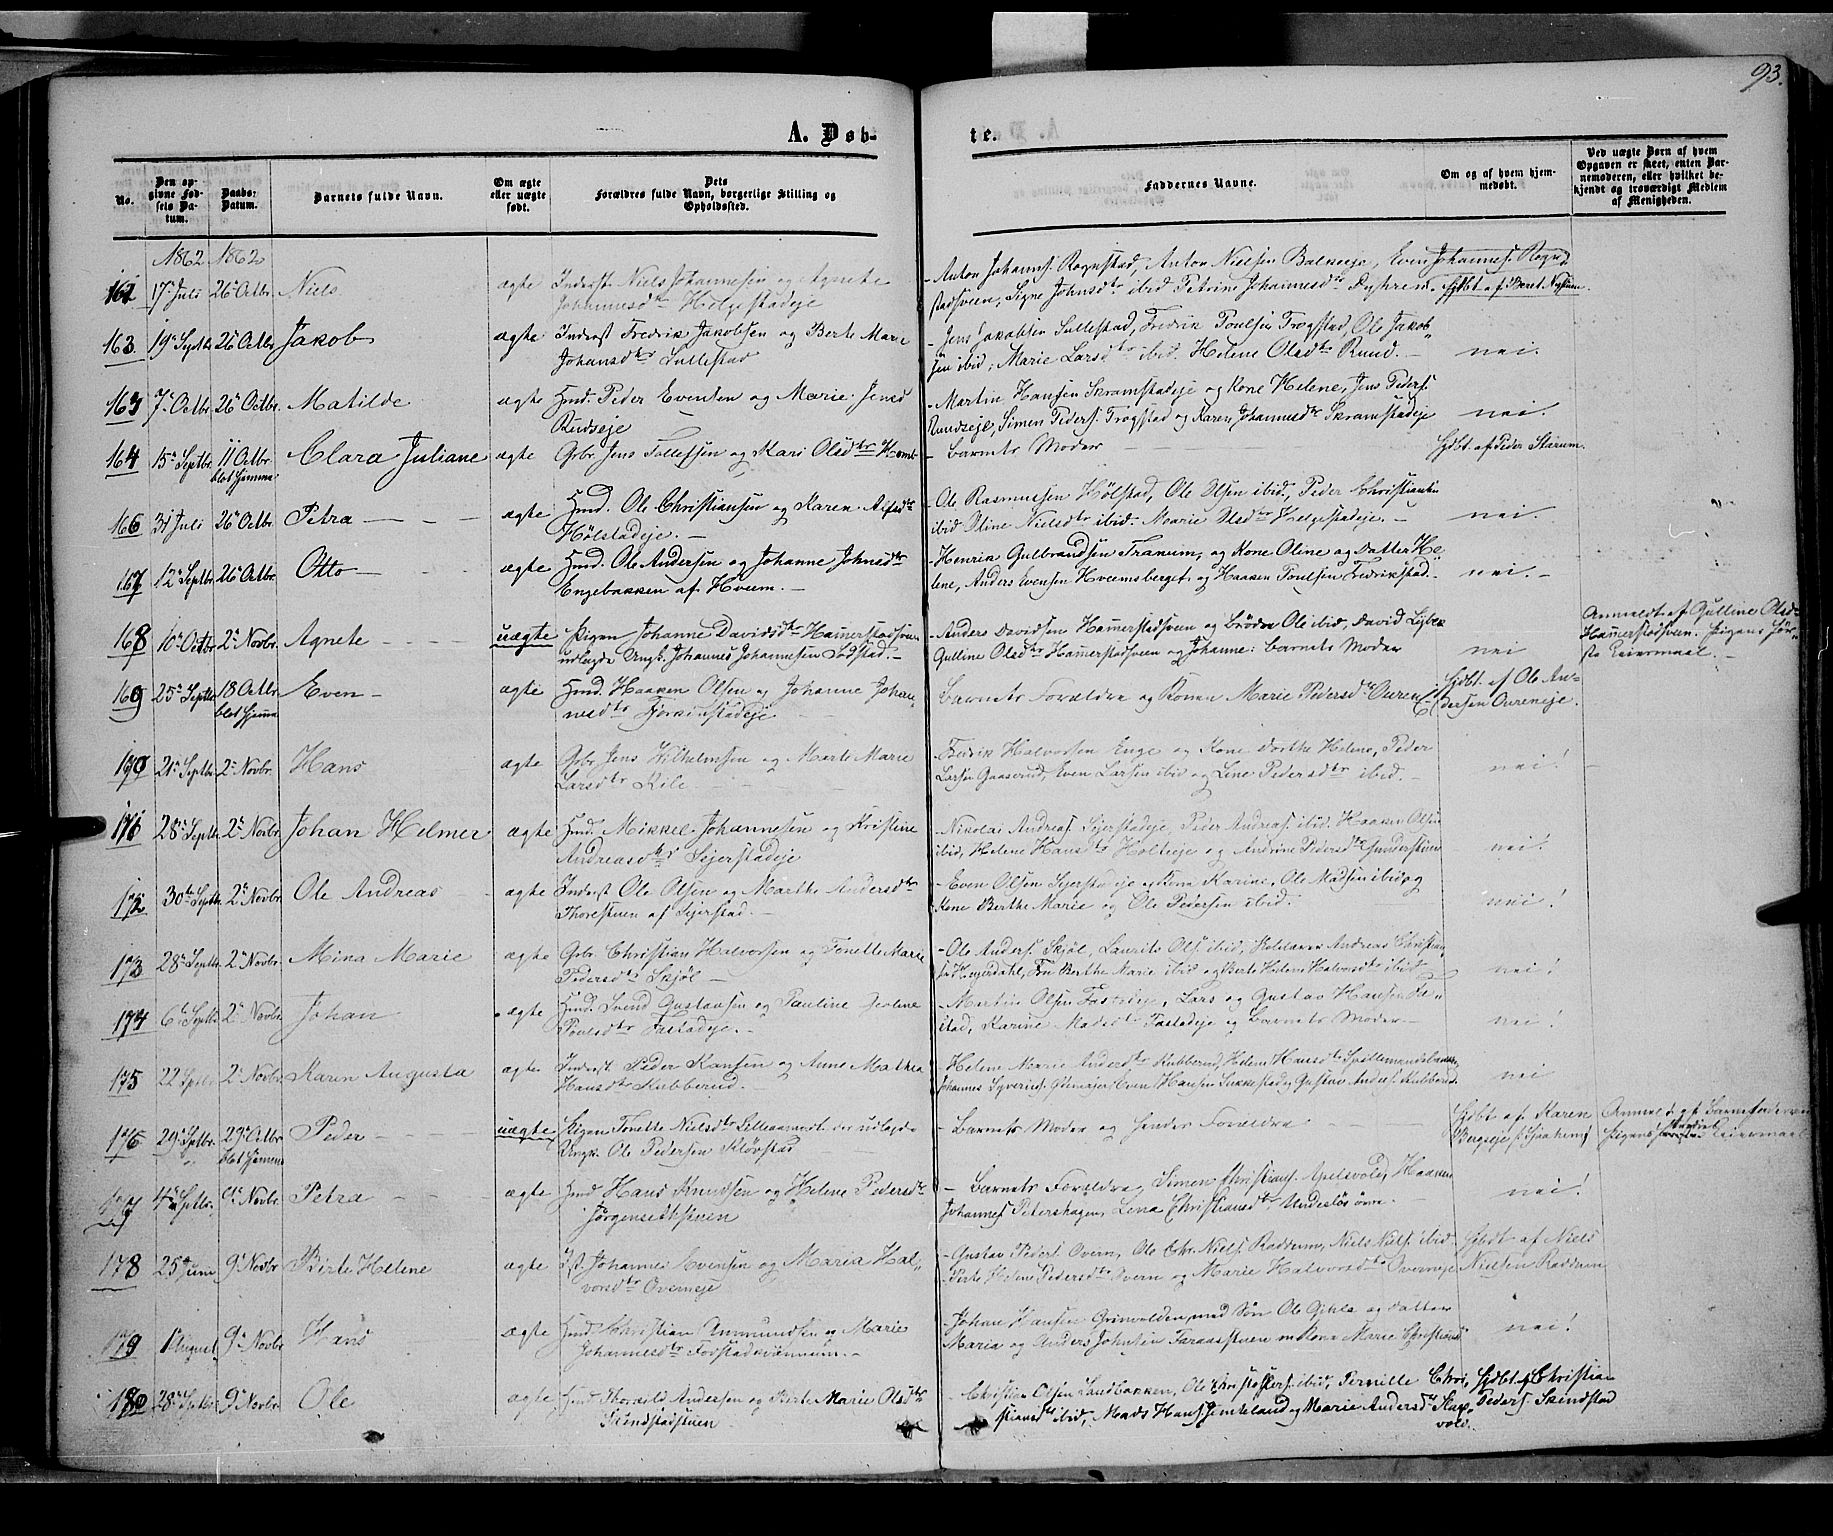 93.
A. Døb-
te.
No.
Den op-
givne Fød-
sels Da-
tum.
Daabs-
Datum.
Barnets fulde Navn.
Om ægte
eller uægte
født.
Dets
Forældres fulde Navn, borgerlige Stilling og
Opholdssted.
Faddernes Navne.
Om og af hvem hjem-
medøbt.
Ved uægte Børn af hvem
Opgaven er skeet, enten Bar-
nemoderen, eller hvilket be-
kjendt og troværdigt Medlem
af Menigheden.
1862 1862
17 Juli 26 Octbr. Niels ægte Inderst Niels Johannesen og Agnete
Johannesdtr Helgestadeje
- Anton Johanns. Rognstad, Anton Nielsen Balkeeje, Even Johannes. Rogn-
stadsveen, Signe Johnsdtr ibid Petrine Johannesdtr Dyhren. Hjdbt. af Beret Nysum.
163. 19 Septbr 26 Octbr Jakob ægte Inderst Fredrik Jakobsen og Berte Marie
Johansdtr Sullestad
- Jens Jakobsen Sullestad, Fredrik Poulsen Trogstad, Ole Jakob-
sen ibid, Marie Larsdtr ibid. Helene Olsdtr Ruud. - nei.
163 7 Octbr. 26 Octbr. Matilde ægte Hmd. Peder Evensen og Marie Jensd
Rudseje
- Martin Hansen Skramstadeje og Kone Helene, Jens Peders.
Rundseje, Simen Peders. Trogstad og Karen Johannesdtr Skramstadeje nei.
164 15 Septbr. 11 Octbr blot hjemme Clara Juliane ægte Gbr Jens Tollefsen og Mari Olsdtr Homb
- Barnets Moder Hjdbt af Peder Starum.
166 31 Juli 26 Octbr. Petra ægte Hmd. Ole Christiansen og Karen Alfsdtr
Hølstadeje. -
Ole Rasmussen Hølstad, Ole Olsen ibid, Peder Christiansen
ibid Oline Nielsdtr ibid. Marie Olsdtr Helgestadeje. - nei.
167 12 Septbr 26 Octbr. Otto ægte Hmd. Ole Andersen og Johanne Johnsdtr
Engebakken af Hveem. -
- Henrik Gulbrandsen Tranum, og Kone Oline og Datter He-
lene, Anders Evensen Hveemsberget, og Haaken Poulsen Fredrikstad. nei. -
168 10 Octbr 2 Novbr. Agnete uægte Pigen Johanne Davidsdtr Hammerstadsveen
udlagde Ungk. Johannes Johannesen Sødstad. -
- Anders Davidsen Hammerstadsveen og Brodre Ole ibid. David
Gulline Olsdtr Hammerstadsveen og Johanne: Barnets Moder nei
Anmeldt af Gulline Olsd
Hammerstadsveen. Pigens før-
ste Leiermaal.
169 25 Septbr 18 Octbr blot hjemme Even - ægte Hmd. Haaken Olsen og Johanne Johan-
nesdtr
Barnets Forældre og Konen Marie Pedersd Ouren
Hjdbt. af Ole An-
dersen Oureneje.
170 21 Septbr. 2 Novbr. Hans ægte Gbr. Jens Wilhelmsen og Marte Marie
Larsdtr Kile
- Fredrik Halvorsen Enge og Kone Dorthe Helene, Peder
Larsen Gaaserud, Even Larsen ibid og Lene Pedersdtr ibid. - nei!
171 28 Septbr. 2 Novbr. Johan Helmer ægte Hmd. Mikkel Johannesen og Kristine
Andreasdtr Sejerstadeje
- Nikolai Andreas. Sejerstadeje, Peder Andreas. ibid. Haaken Olsen
ibid, Helene Hansdtr Holteeje og Andrine Pedersdtr nei!
172 30 Septbr. 2 Novbr. Ole Andreas ægte Inderst Ole Olsen og Marthe Andersdtr
Thorestuen af Sejerstad. -
- Even Olsen Sejerstadeje og Kone Karine, Ole Madsen ibid og
Kone Berthe Marie og Ole Pedersen ibid. nei!
173 28 Septbr. 2 Novbr. Mina Marie ægte Gbr Christian Halvorsen og Tonette Marie
Pedersdtr Skjøl -
- Ole Anders. Skjøl, Laurits Ols. ibid, Andreas Christian-
sen Hejerdahl, Berthe Marie ibid og Berte Helene Halvorsdtr ibid nei!
174 6 Septbr 2 Novbr. Johan ægte Hmd. Svend Gustavsen og Pauline
Poulsdtr Fastadeje. -
- Martin Olsen Fastadeje, Lars og Gustav Hansen Fa-
stad, Karine Madsdtr Fastadeje og Barnets Moder. nei!
175 22 Septbr 2 Novbr. Karen Augusta ægte Inderst Peder Hansen og Anne Mathea
Hansdtr Kubberud. -
- Helene Marie Andersdtr Kubberud, Helene Hansdtr Spillemandsbakken,
Johannes Syverins. Even Hansen Sukkestad og Gustav Anders. Kubberud. nei
176 29 Septbr. 29 Octbr blot hjemme Peder uægte Pigen Tonette Nielsdtr udlagde
Ungk. Ole Pedersen Kløvstad
- Barnets Moder og hendes Forældre
Hjdbt af Karen
Anmeldt af Barnefaderen
Pigens Leiermaal
4 Septbr. 9 Novbr. Petra ægte Hmd Hans Knudsen og Helene Pedersdtr
Jørgensethstuen
- Barnets Forældre, Simen Christians. Apelsvold, Haaken
Johannes. Petershagen, Lena Christiansdtr Undesløs øvre. nei!
178 25 Juni 9 Novbr. Birte Helene ægte Johannes Evensen og Maria Hal-
vorsdtr Overneje
- Gustav Peders. Overn, Ole Chr. Niels. Raddum, Niels Niels. ibid.
Berte Helene Pedersdtr Overn og Marie Halvorsdtr Overneje
Hjdbt af Niels
Nielsen Raddum
179 1 August 9 Novbr. Hans ægte Hmd Christian Ammundsen og Marie
Johannesdtr
Johan Hansen Grimvolden, med Søn Ole Gihle og Datter
Maria og Anders Johnsen m Kone Marie Christiansd nei!
180 28 Septbr 9 Novbr. Ole ægte Hmd Thorvald Andersen og Berte Marie Olsdtr
Skindstadstuen
- Christian Olsen Sandbakken, Ole Christoffers. ibid, Pernille Chri-
stiansdtr ibid, Mads Hans. Jemteland og Marie Andersd Slag-
vold.
Hjdbt af Christian
Peders. Skindstad